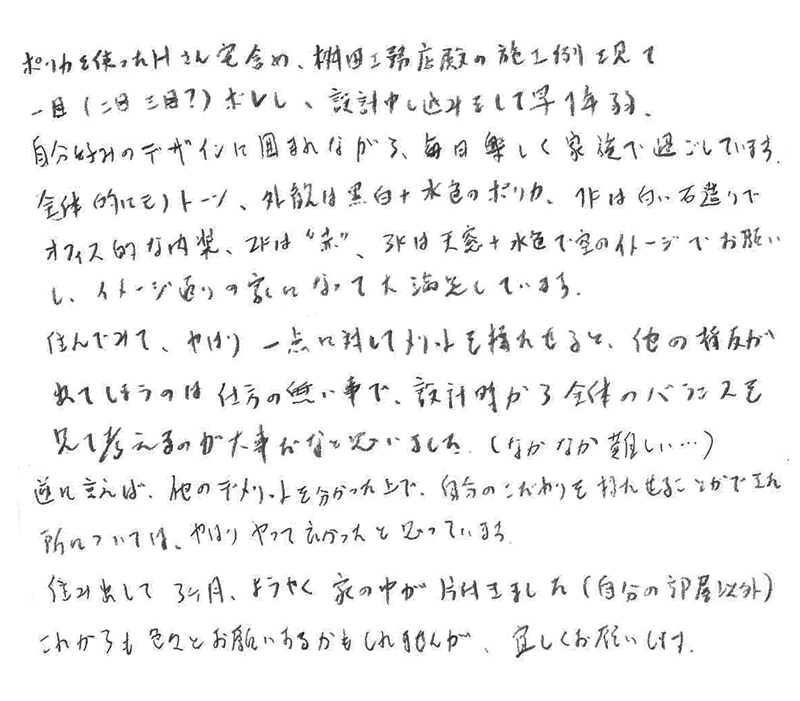 ポリカを使ったHさん宅含め、桝田工務店殿の施工例を見て
一目(二目三目?)ボレし、設計申し込みをして早1年弱、
自分好みのデザインに囲まれながら、毎日楽しく家族で過ごしています。
全体的にモノトーン、外観は黒白+水色のポリカ、1Fは白い石造りで
オフィス的な内装、2Fは"赤"、3Fは天窓+水色で空のイメージでお願い
し、イメージ通りの家になって大満足しています。
住んでみて、やはり一点に対してメリットを持たせると、他の相反が
出てしまうのは仕方の無い事で、設計時から全体のバランスを
見て考えるのが大事だなと思いました。(なかなか難しい…)
逆に言えば、他のデメリットを分かった上で、自分のこだわりを持たせることができた
所については、やはりやって良かったと思っています。
住み出して3ヶ月、ようやく家の中が片付きました(自分の部屋以外)
これからも色々とお願いあるかもしれませんが、宜しくお願いします。